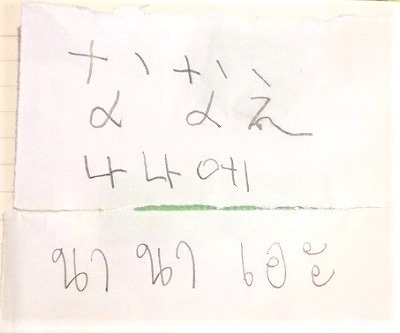 ななえ
나나에
นานาเอะ